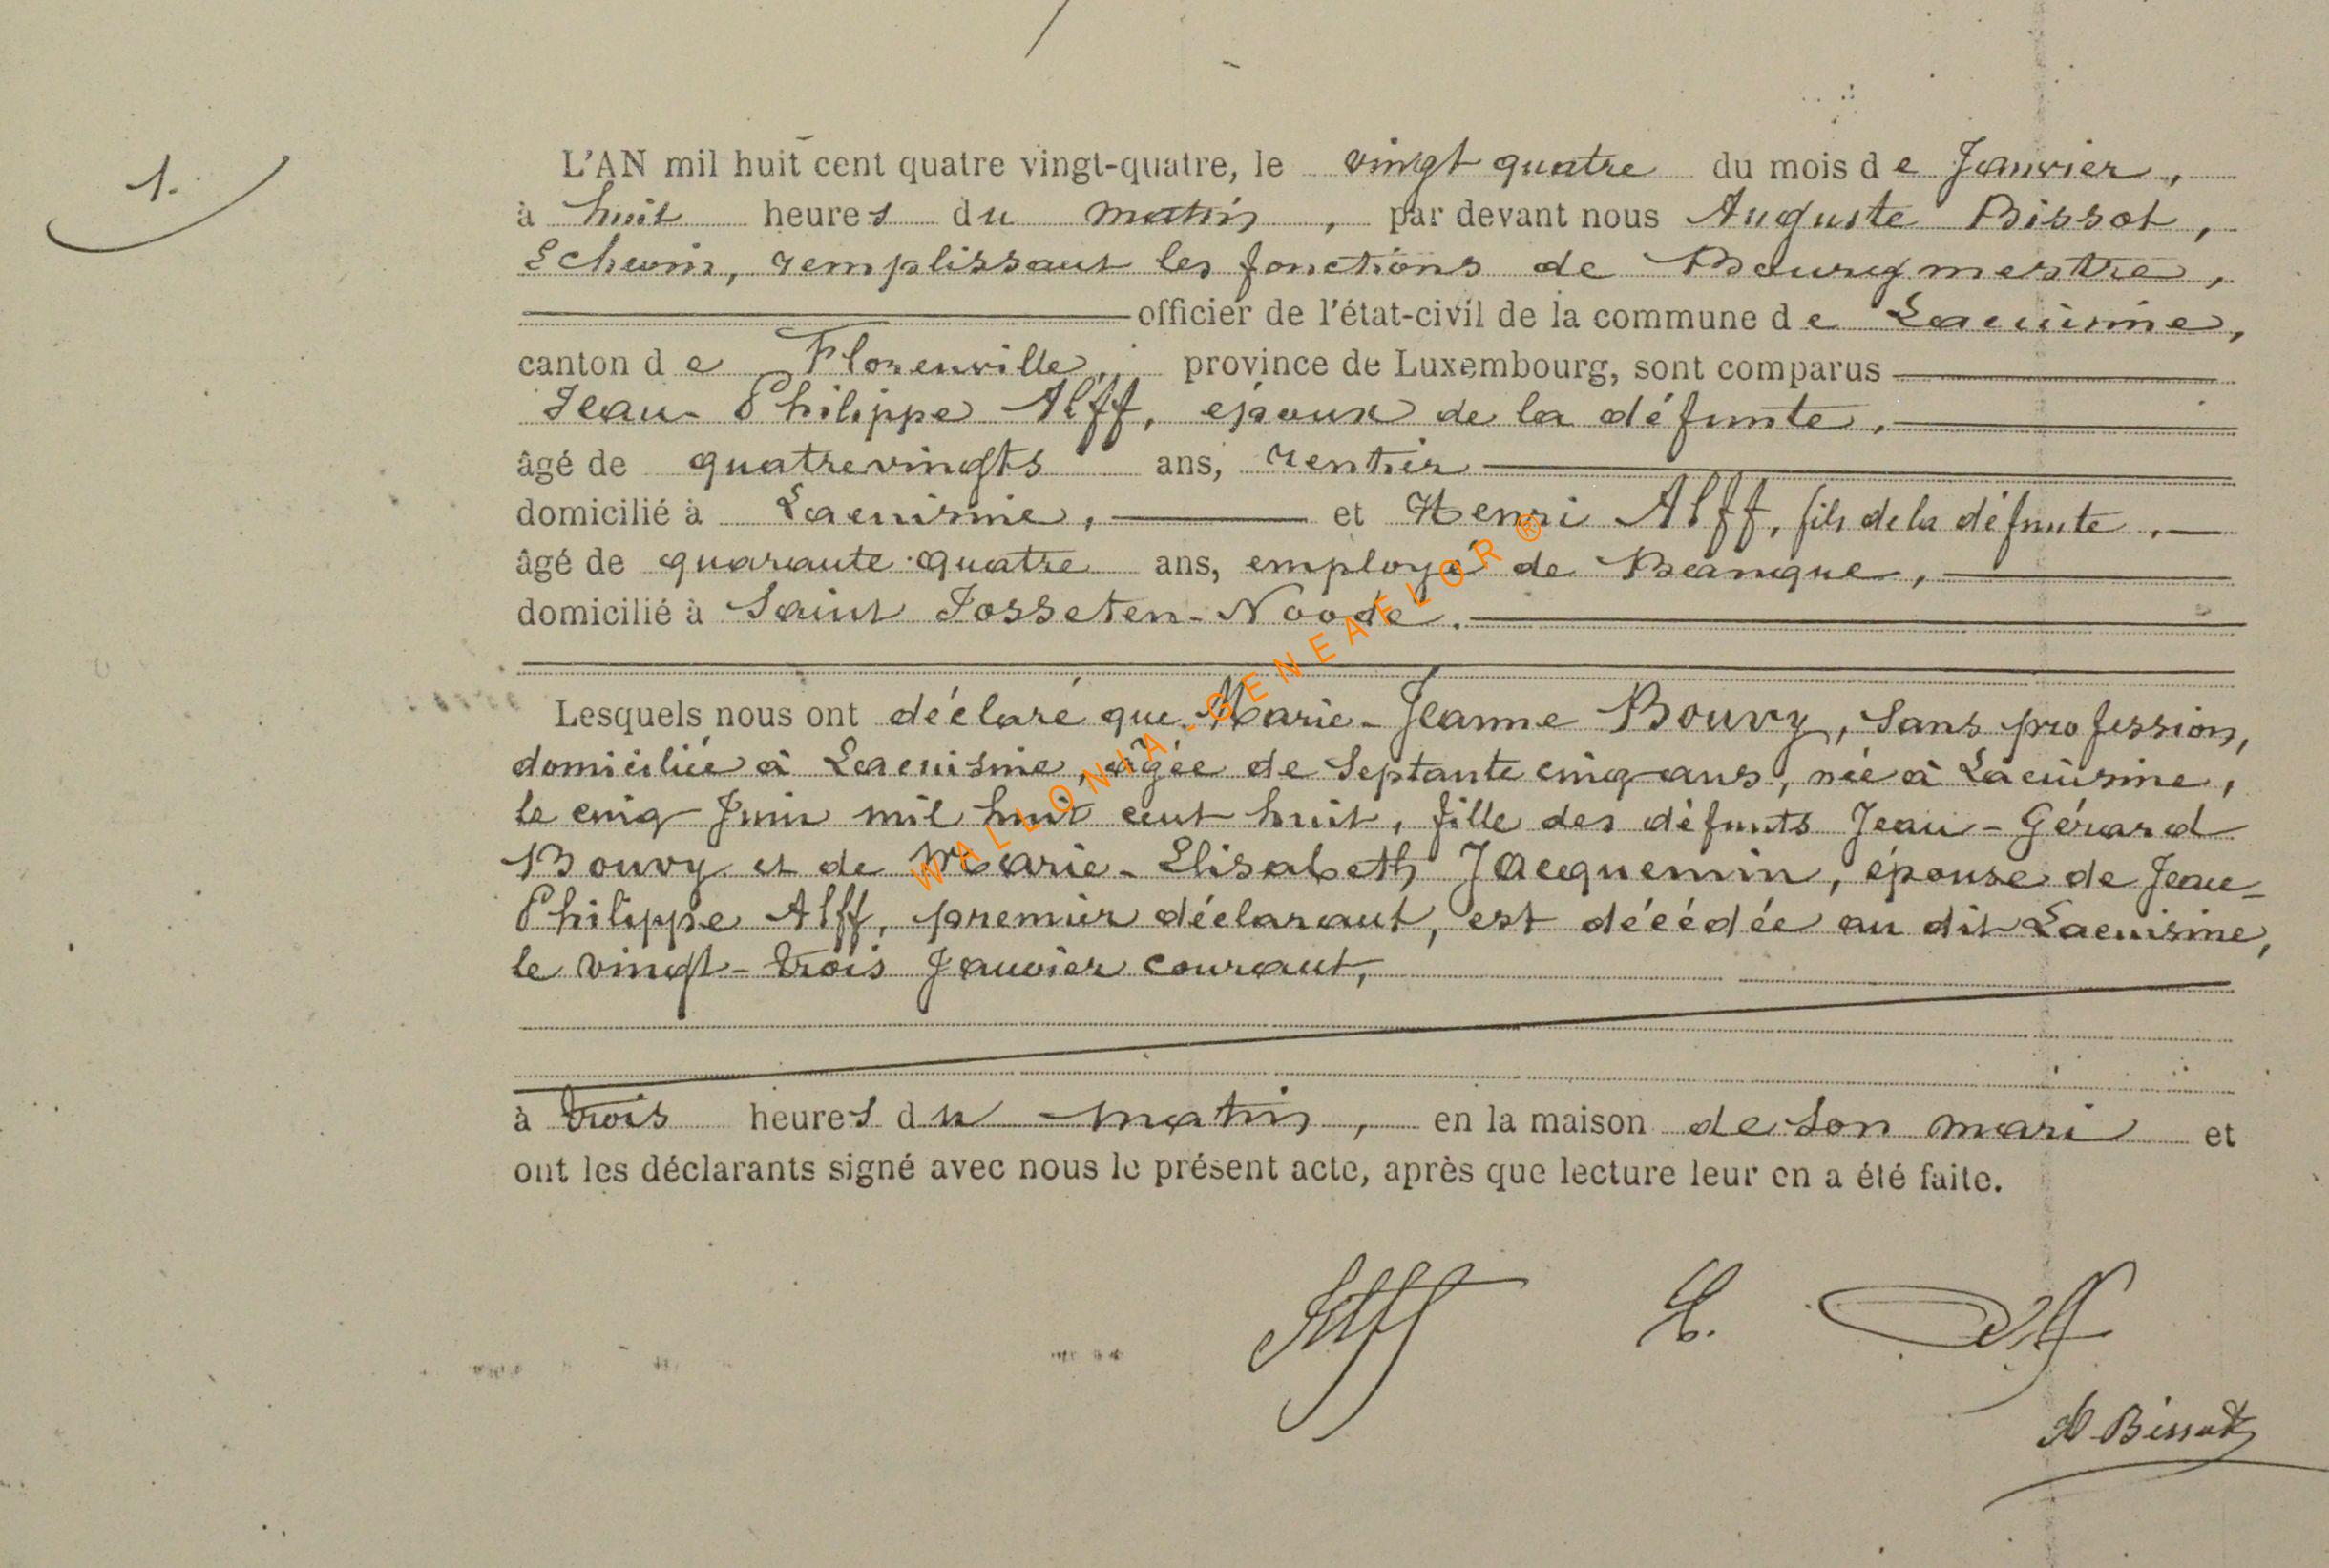 1.
L'AN mil huit cent quatre vingt-quatre, le vingt quatre du mois de Janvier,
à huit heures du matin, par devant nous Auguste Bissot,
Echevin, remplissant les fonctions de Bourgmestre,
officier de l'état-civil de la commune de Lacuisine,
canton de Florenville, province de Luxembourg, sont comparus
Jean-Philippe Alff, époux de la défunte,
âgé de quatrevingts ans, rentier
domicilié à Lacuisine, et Henri Alff, fils de la défunte,
âgé de quarante-quatre ans, employé de Banque,
domicilié à Saint Josseten-Noode.
Lesquels nous ont déclaré que Marie-Jeanne Bouvy, sans profession,
domiciliée à Lacuisine, âgée de septante cinq ans, née à Lacuisine,
le cinq Juin mil huit cent huit, fille des défunts Jean-Gérard
Bouvy et de Marie-Elisabeth Jacquemin, épouse de Jean-
Philippe Alff, premier déclarant, est décédée au dit Lacuisine,
le vingt-trois Janvier courant,
à trois heures du matin, en la maison de son mari et
ont les déclarants signé avec nous le présent acte, après que lecture leur en a été faite.
Alff Alff
A Bissot
WALLONIA-GENEAFLOR®